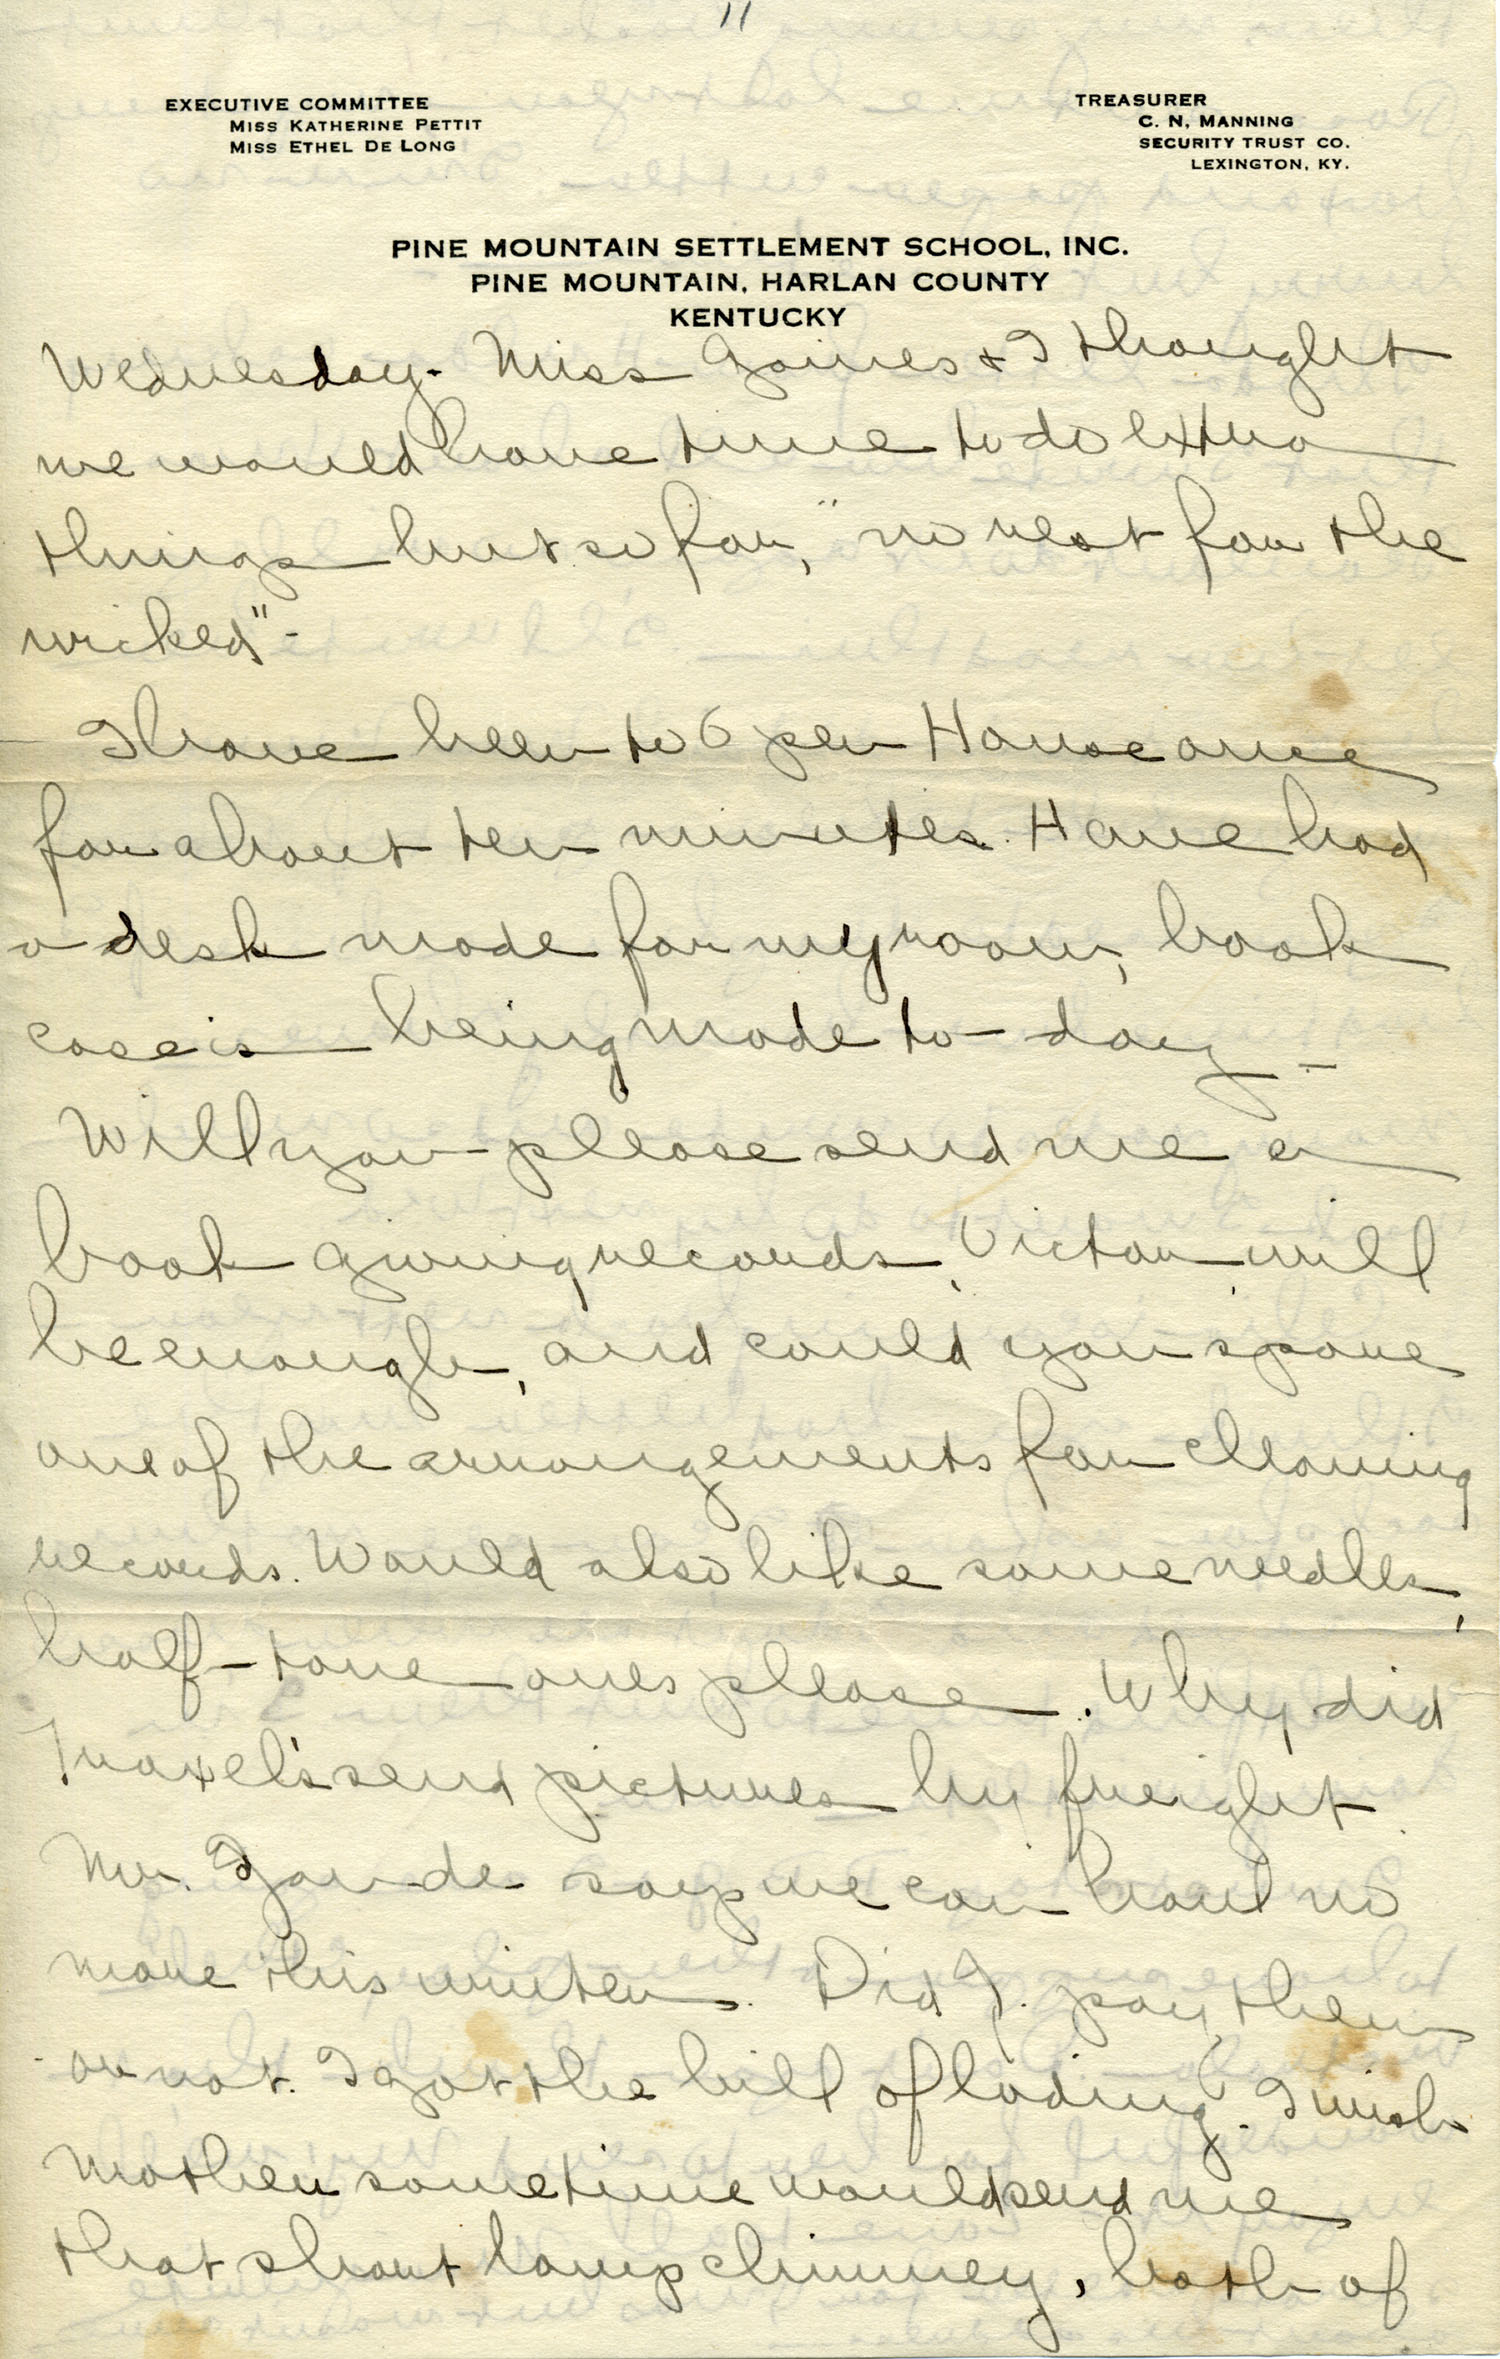 11
EXECUTIVE COMMITTEE
MISS KATHERINE PETTIT
MISS ETHEL DE LONG
TREASURER
C. N. MANNING
SECURITY TRUST CO.
LEXINGTON, KY.
PINE MOUNTAIN SETTLEMENT SCHOOL, INC.
PINE MOUNTAIN, HARLAN COUNTY
KENTUCKY
Wednesday. Miss Gaines & I thought
we would have time to do extra
things but so far, "no rest for the
wicked" -
I have been to Open House once
for about ten minutes. Have had
a desk made for my room, book
case is being made to-day -
Will you please send me a
book giving records, Victor, will
be enough, and could you spare
one of the arrangements for cleaning
records. Would also like some needles,
half-tone ones please. Why did
Traxel's send pictures by freight.
Mr. Gaude says we can haul no
more this winter. Did I. pay them
or not. I got the bill of lading. I wish
Mother sometime would send me
that short lamp chimney, both of